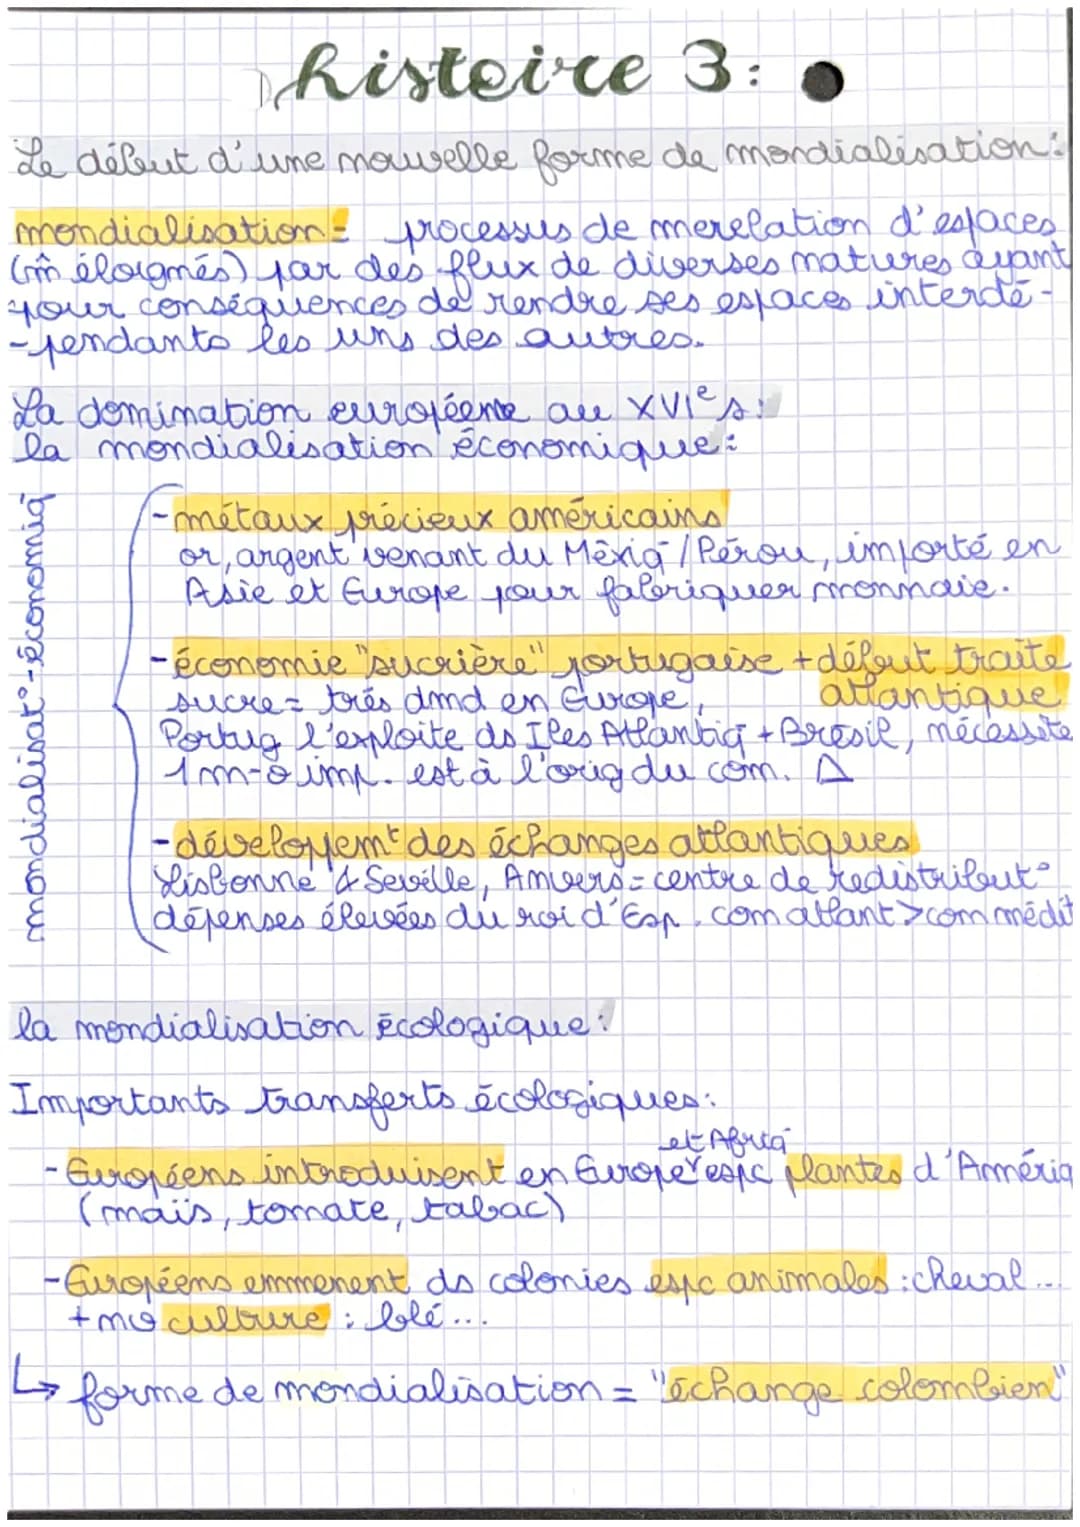 histoire 3:
Le début d'une nouvelle forme de mondialisation:
mondialisation= processus de merelation d'espaces
(m̂ éloignés) par des flux de diverses natures ayant
pour conséquences de rendre ses espaces interdé-
-pendants les uns des autres.
La domination européene au XVIe s:
la mondialisation économique:
mondialisat°-économiq
-métaux précieux américains
or, argent venant du Méxiq/Pérou, importé en
Asie et Europe pour fabriquer monnaie.
-économie "sucrière" portugaise + début traite
atlantique
sucre= très dmd en Europe,
Portug l'exploite ds Iles Atlantiq + Brésil, nécessite
1 m-o imp. est à l'orig du com. Δ
-développemt des échanges atlantiques
Lisbonne & Seville, Anvers= centre de redistribut°
dépenses élevées du roi d'Esp. com atlant > com médit
la mondialisation écologique:
Importants transferts écologiques:
et Afriq
-Européens introduisent en Europe espc plantes d'Amériq
(maïs, tomate, tabac)
-Européens emmenent ds colonies espc animales: cheval...
+ culture: blé...
↳ forme de mondialisation = "échange colombien"